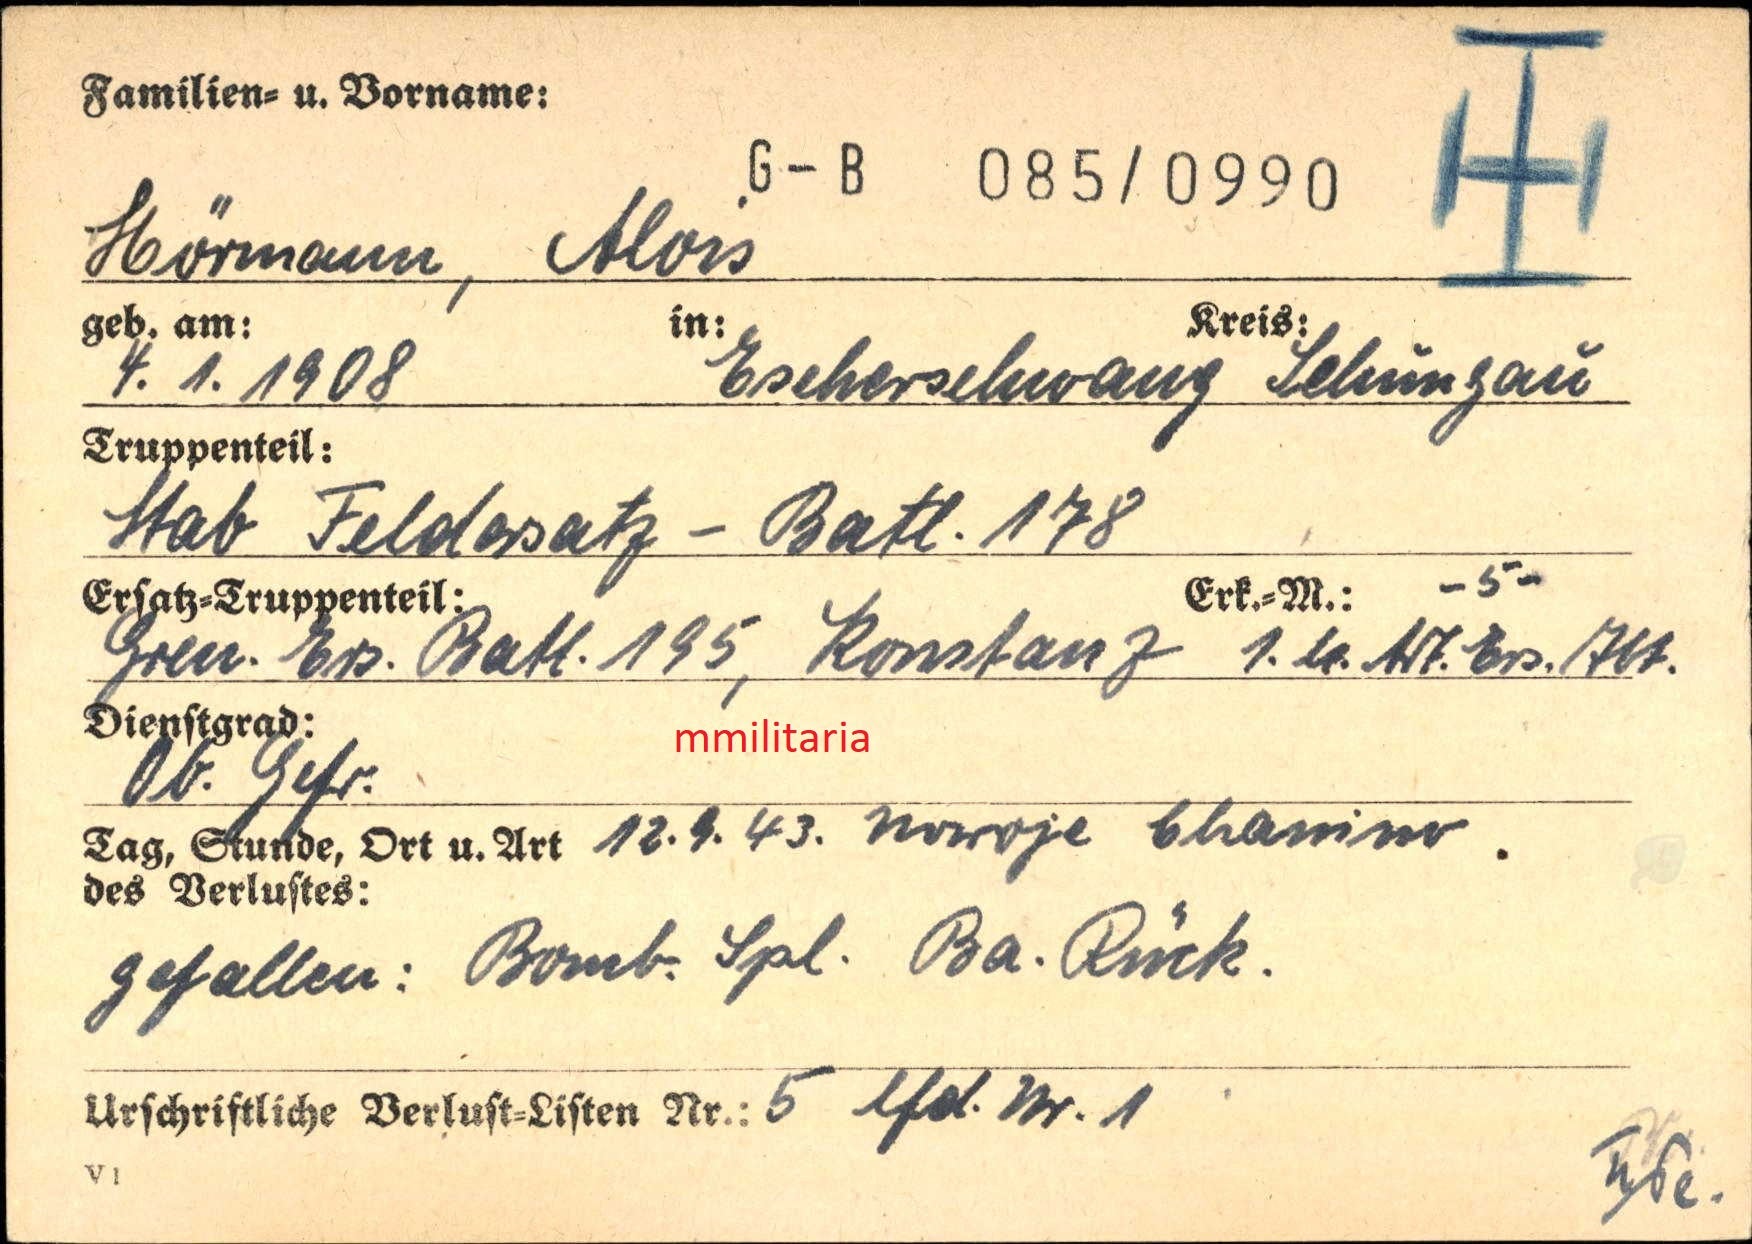 Familien- u. Vorname:
G-B 085/0990
Hörmann, Alois
geb. am: in: Kreis:
4. 1. 1908 Escherschwang Schungau
Truppenteil:
Stab Feldersatz - Batl. 178
Ersatz-Truppenteil: Erk.-M.: -5-
Gren. Ers. Batl. 195, Konstanz 1. Ers.
Dienstgrad:
mmilitaria
Ob. Gefr.
Tag, Stunde, Ort u. Art 12.9.43. Nowoje Chanino.
des Verlustes:
gefallen: Bomb. Spl. Ba. Rück.
Urschriftliche Verlust-Listen Nr.: 5 lfd. Nr. 1
V1